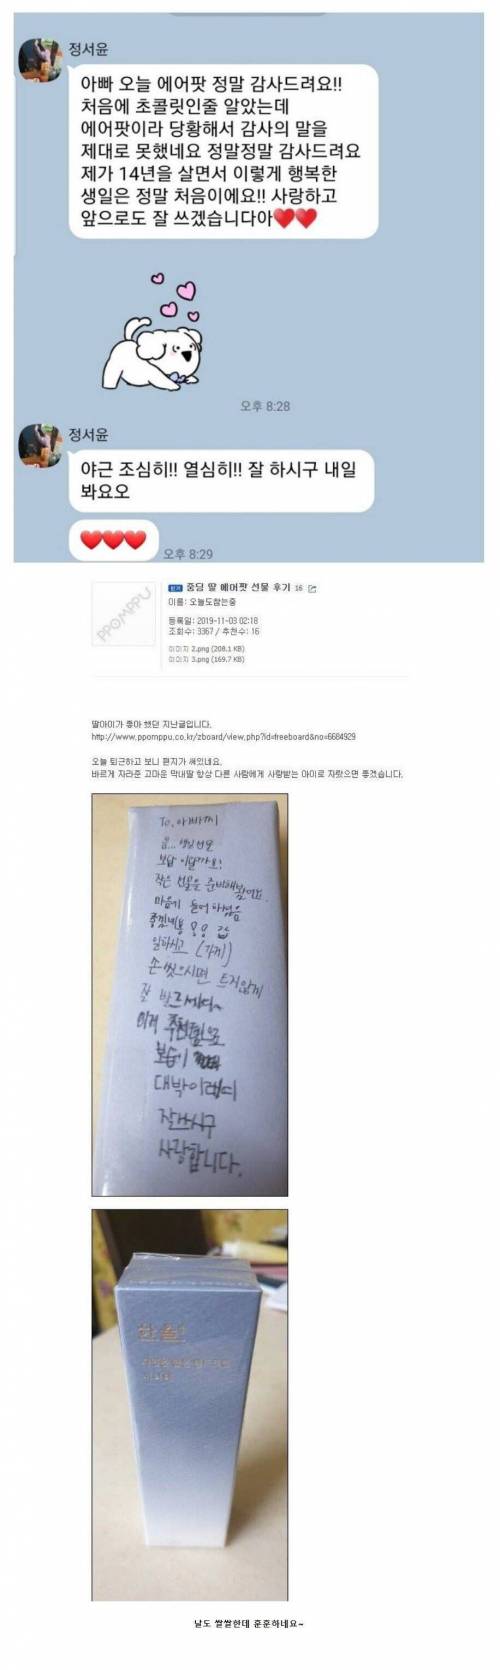 정서윤
아빠 오늘 에어팟 정말 감사드려요!!
처음에 초콜릿인줄 알았는데
에어팟이라 당황해서 감사의 말을
제대로 못했네요 정말정말 감사드려요
제가 14년을 살면서 이렇게 행복한
생일은 정말 처음이에요!! 사랑하고
앞으로도 잘 쓰겠습니다아❤️❤️
오후 8:28
정서윤
야근 조심히!! 열심히!! 잘 하시구 내일
봐요오
❤️❤️❤️
오후 8:29
PPOMPPU
인기 중딩 딸 에어팟 선물 후기 16
이름: 오늘도참는중
등록일: 2019-11-03 02:18
조회수: 3367 / 추천수: 16
이미지 2.png (208.1 KB)
이미지 3.png (169.7 KB)
딸아이가 좋아 했던 지난글입니다.
http://www.ppomppu.co.kr/zboard/view.php?id=freeboard&no=6684929
오늘 퇴근하고 보니 편지가 써있네요.
바르게 자라준 고마운 막내딸 항상 다른 사람에게 사랑받는 아이로 자랐으면 좋겠습니다.
To. 아빠씨
음... 생일선물
보답 이랄까요!
작은 선물을 준비해봤어요.
마음에 들어하셨음
좋겠네용
일하시고 (가게)
손 씻으시면 트지않게
잘 바르세다~
이거
보습이
대박이래여
잘쓰시구
사랑합니다.
한율
날도 쌀쌀한데 훈훈하네요~